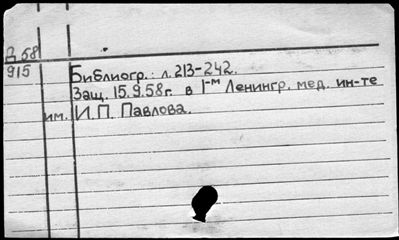 Д 58
915
Библиогр.: л. 213-242.
Защ. 15.9.58г. в 1-м Ленингр. мед. ин-те
им. И.П. Павлова.